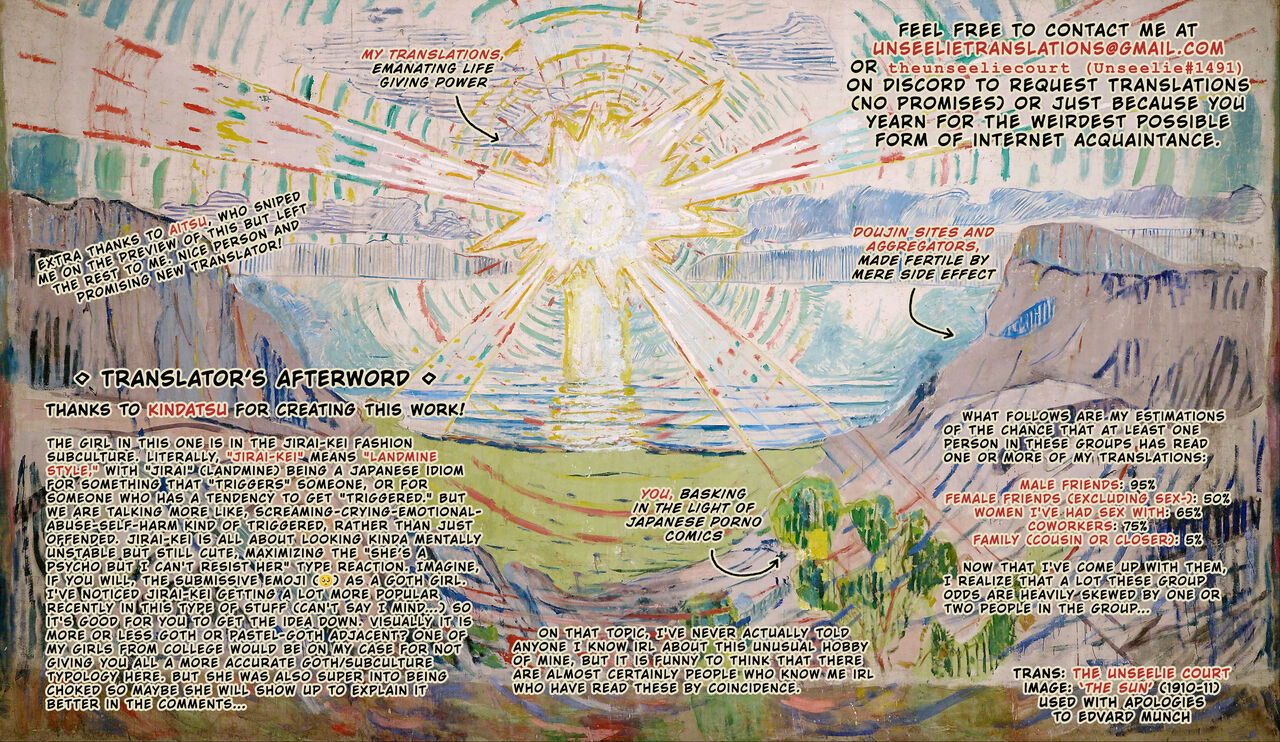 MY TRANSLATIONS,
EMANATING LIFE
GIVING POWER
FEEL FREE TO CONTACT ME AT
UNSEELIETRANSLATIONS@GMAIL.COM
OR theunseeliecourt (Unseelie#1491)
ON DISCORD TO REQUEST TRANSLATIONS
(NO PROMISES) OR JUST BECAUSE YOU
YEARN FOR THE WEIRDEST POSSIBLE
FORM OF INTERNET ACQUAINTANCE.
EXTRA THANKS TO AITSU, WHO SNIPED
ME ON THE PREVIEW OF THIS BUT LEFT
THE REST TO ME. NICE PERSON AND
PROMISING NEW TRANSLATOR!
DOUJIN SITES AND
AGGREGATORS,
MADE FERTILE BY
MERE SIDE EFFECT
◇ TRANSLATOR'S AFTERWORD ◇
THANKS TO KINDATSU FOR CREATING THIS WORK!
THE GIRL IN THIS ONE IS IN THE JIRAI-KEI FASHION
SUBCULTURE. LITERALLY, "JIRAI-KEI" MEANS "LANDMINE
STYLE," WITH "JIRAI" (LANDMINE) BEING A JAPANESE IDIOM
FOR SOMETHING THAT "TRIGGERS" SOMEONE, OR FOR
SOMEONE WHO HAS A TENDENCY TO GET "TRIGGERED." BUT
WE ARE TALKING MORE LIKE, SCREAMING-CRYING-EMOTIONAL-
ABUSE-SELF-HARM KIND OF TRIGGERED, RATHER THAN JUST
OFFENDED. JIRAI-KEI IS ALL ABOUT LOOKING KINDA MENTALLY
UNSTABLE BUT STILL CUTE, MAXIMIZING THE "SHE'S
PSYCHO BUT I CAN'T RESIST HER" TYPE REACTION. IMAGINE,
IF YOU WILL, THE SUBMISSIVE EMOJI (🥺) AS A GOTH GIRL.
I'VE NOTICED JIRAI-KEI GETTING A LOT MORE POPULAR
RECENTLY IN THIS TYPE OF STUFF (CAN'T SAY I MIND...) SO
IT'S GOOD FOR YOU TO GET THE IDEA DOWN. VISUALLY IT IS
MORE OR LESS GOTH OR PASTEL-GOTH ADJACENT? ONE OF
MY GIRLS FROM COLLEGE WOULD BE ON MY CASE FOR NOT
GIVING YOU ALL A MORE ACCURATE GOTH/SUBCULTURE
TYPOLOGY HERE. BUT SHE WAS ALSO SUPER INTO BEING
CHOKED SO MAYBE SHE WILL SHOW UP TO EXPLAIN IT
BETTER IN THE COMMENTS...
YOU, BASKING
IN THE LIGHT OF
JAPANESE PORNO
COMICS
ON THAT TOPIC, I'VE NEVER ACTUALLY TOLD
ANYONE I KNOW IRL ABOUT THIS UNUSUAL HOBBY
OF MINE, BUT IT IS FUNNY TO THINK THAT THERE
ARE ALMOST CERTAINLY PEOPLE WHO KNOW ME IRL
WHO HAVE READ THESE BY COINCIDENCE.
WHAT FOLLOWS ARE MY ESTIMATIONS
OF THE CHANCE THAT AT LEAST ONE
PERSON IN THESE GROUPS HAS READ
ONE OR MORE OF MY TRANSLATIONS:
MALE FRIENDS: 95%
FEMALE FRIENDS (EXCLUDING SEX-): 50%
WOMEN I'VE HAD SEX WITH: 65%
COWORKERS: 75%
FAMILY (COUSIN OR CLOSER): 5%
NOW THAT I'VE COME UP WITH THEM,
I REALIZE THAT A LOT THESE GROUP
ODDS ARE HEAVILY SKEWED BY ONE OR
TWO PEOPLE IN THE GROUP...
TRANS: THE UNSEELIE COURT
IMAGE: 'THE SUN' (1910-11)
USED WITH APOLOGIES
TO EDVARD MUNCH